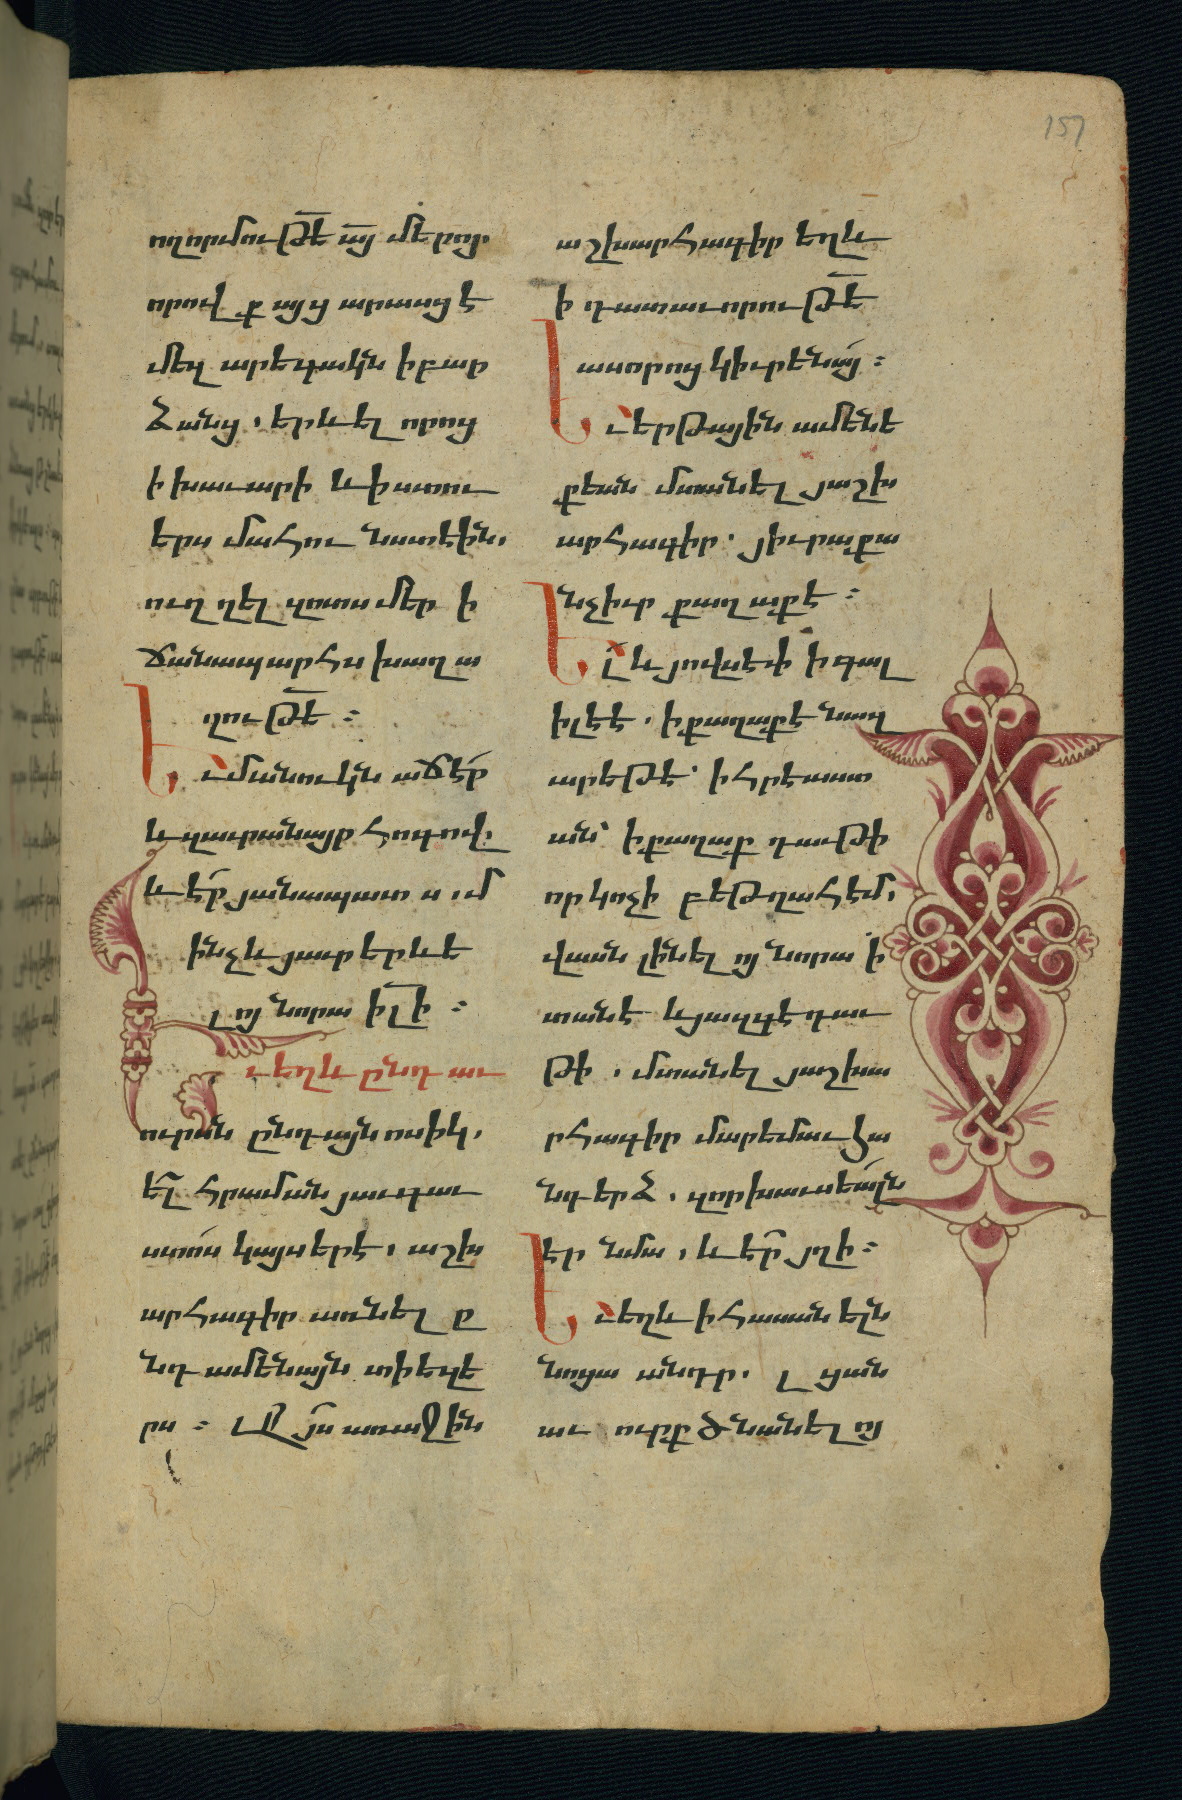 157
ողորմութե այ մերոյ.
որով ք այց արասցէ
մեզ արեգակն ի բար
ձանց, երևել որոց
ի խաւարի և ի ստու
երս մահու նստէին,
ուղղել զոտս մեր ի
ճանապարհս խաղա
ղութե :
Եւ մանուկն աճէր
և զաւրանայր հոգով.
և էր յանապատս, մ
ինչև յաւր երևե
լոյ նորա իլի :
Եւ եղև ընդ աւ
ուրսն ընդ այնոսիկ,
ել հրաման յաւգաւ
ստոս կայսերէ, աշխ
արհագիր առնել ը
նդ ամենայն տիեզե
րս : Այս առաջին
աշխարհագիր եղև
ի դատաւորութե
ասորոց կիւրենայ :
Եւ երթային ամենե
քեան մտանել յաշխ
արհագիր. յիւրաքա
նչիւր քաղաքէ :
Ել և յովսէփ ի գալ
իլեէ, ի քաղաքէ նազ
արեթէ՝ ի հրէաստ
ան՝ ի քաղաք դաւթի
որ կոչի բեթղահեմ,
վասն լինելոյ նորա ի
տանէ և յազգէ դաւ
թի, մտանել յաշխա
րհագիր մարեմաւ հա
նդերձ, զոր խաւսեալն
էր նմա, և էր յղի :
Եւ եղև ի հասանելն
նոցա անդր, լցան
աւուրք ծնանելոյ